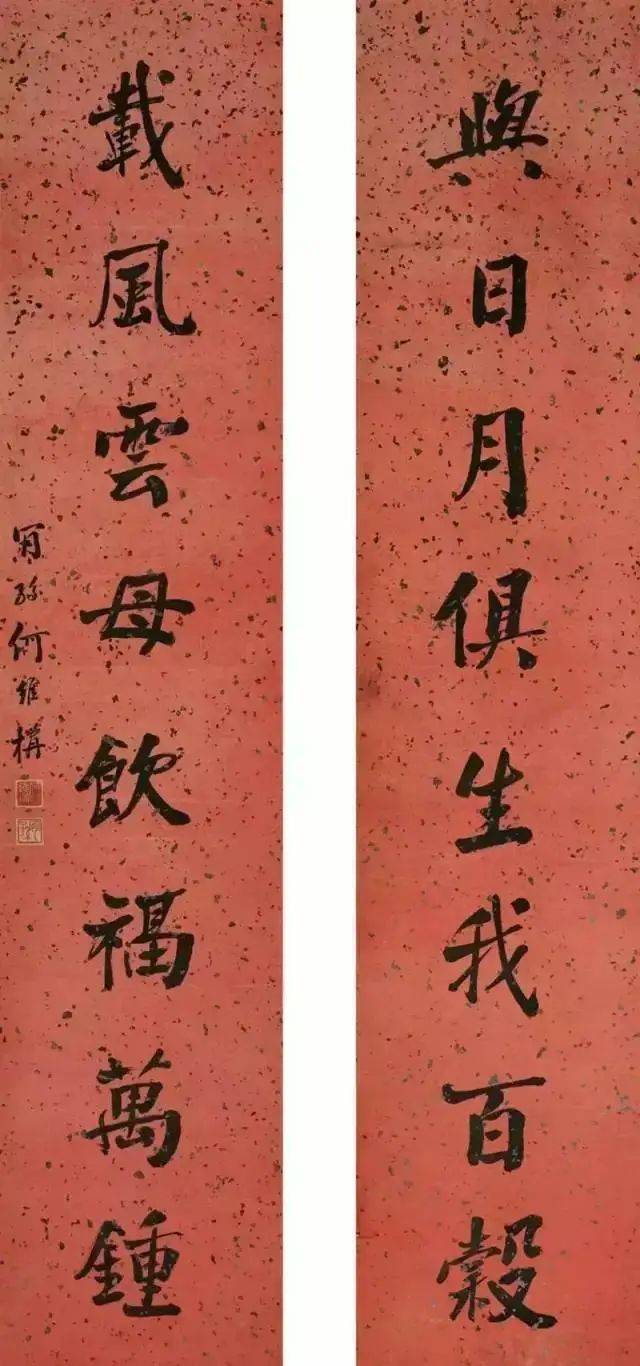 與日月俱生我百穀
載風雲母飲福萬鍾
何維構